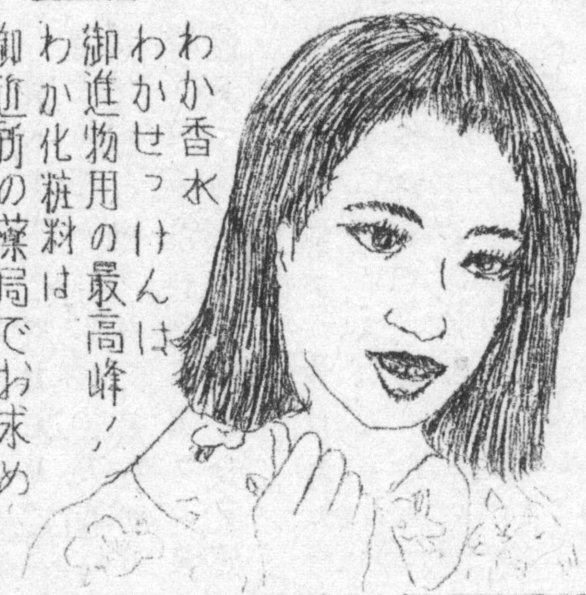 わか香水
わかせっけんは
御進物用の最高峰！
わか化粧料は
御近所の薬局でお求め